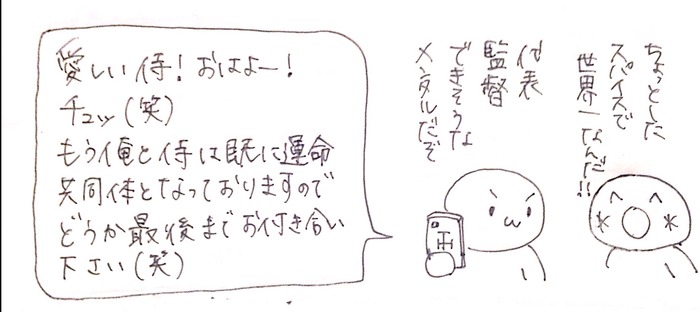 ちょっとした
スパイスで
世界一なんだ!!
代表
監督
できそうな
メンタルだぞ
愛しい侍！おはよー！
チュッ(笑)
もう俺と侍は既に運命
共同体となっておりますので
どうか最後までお付き合い
下さい(笑)